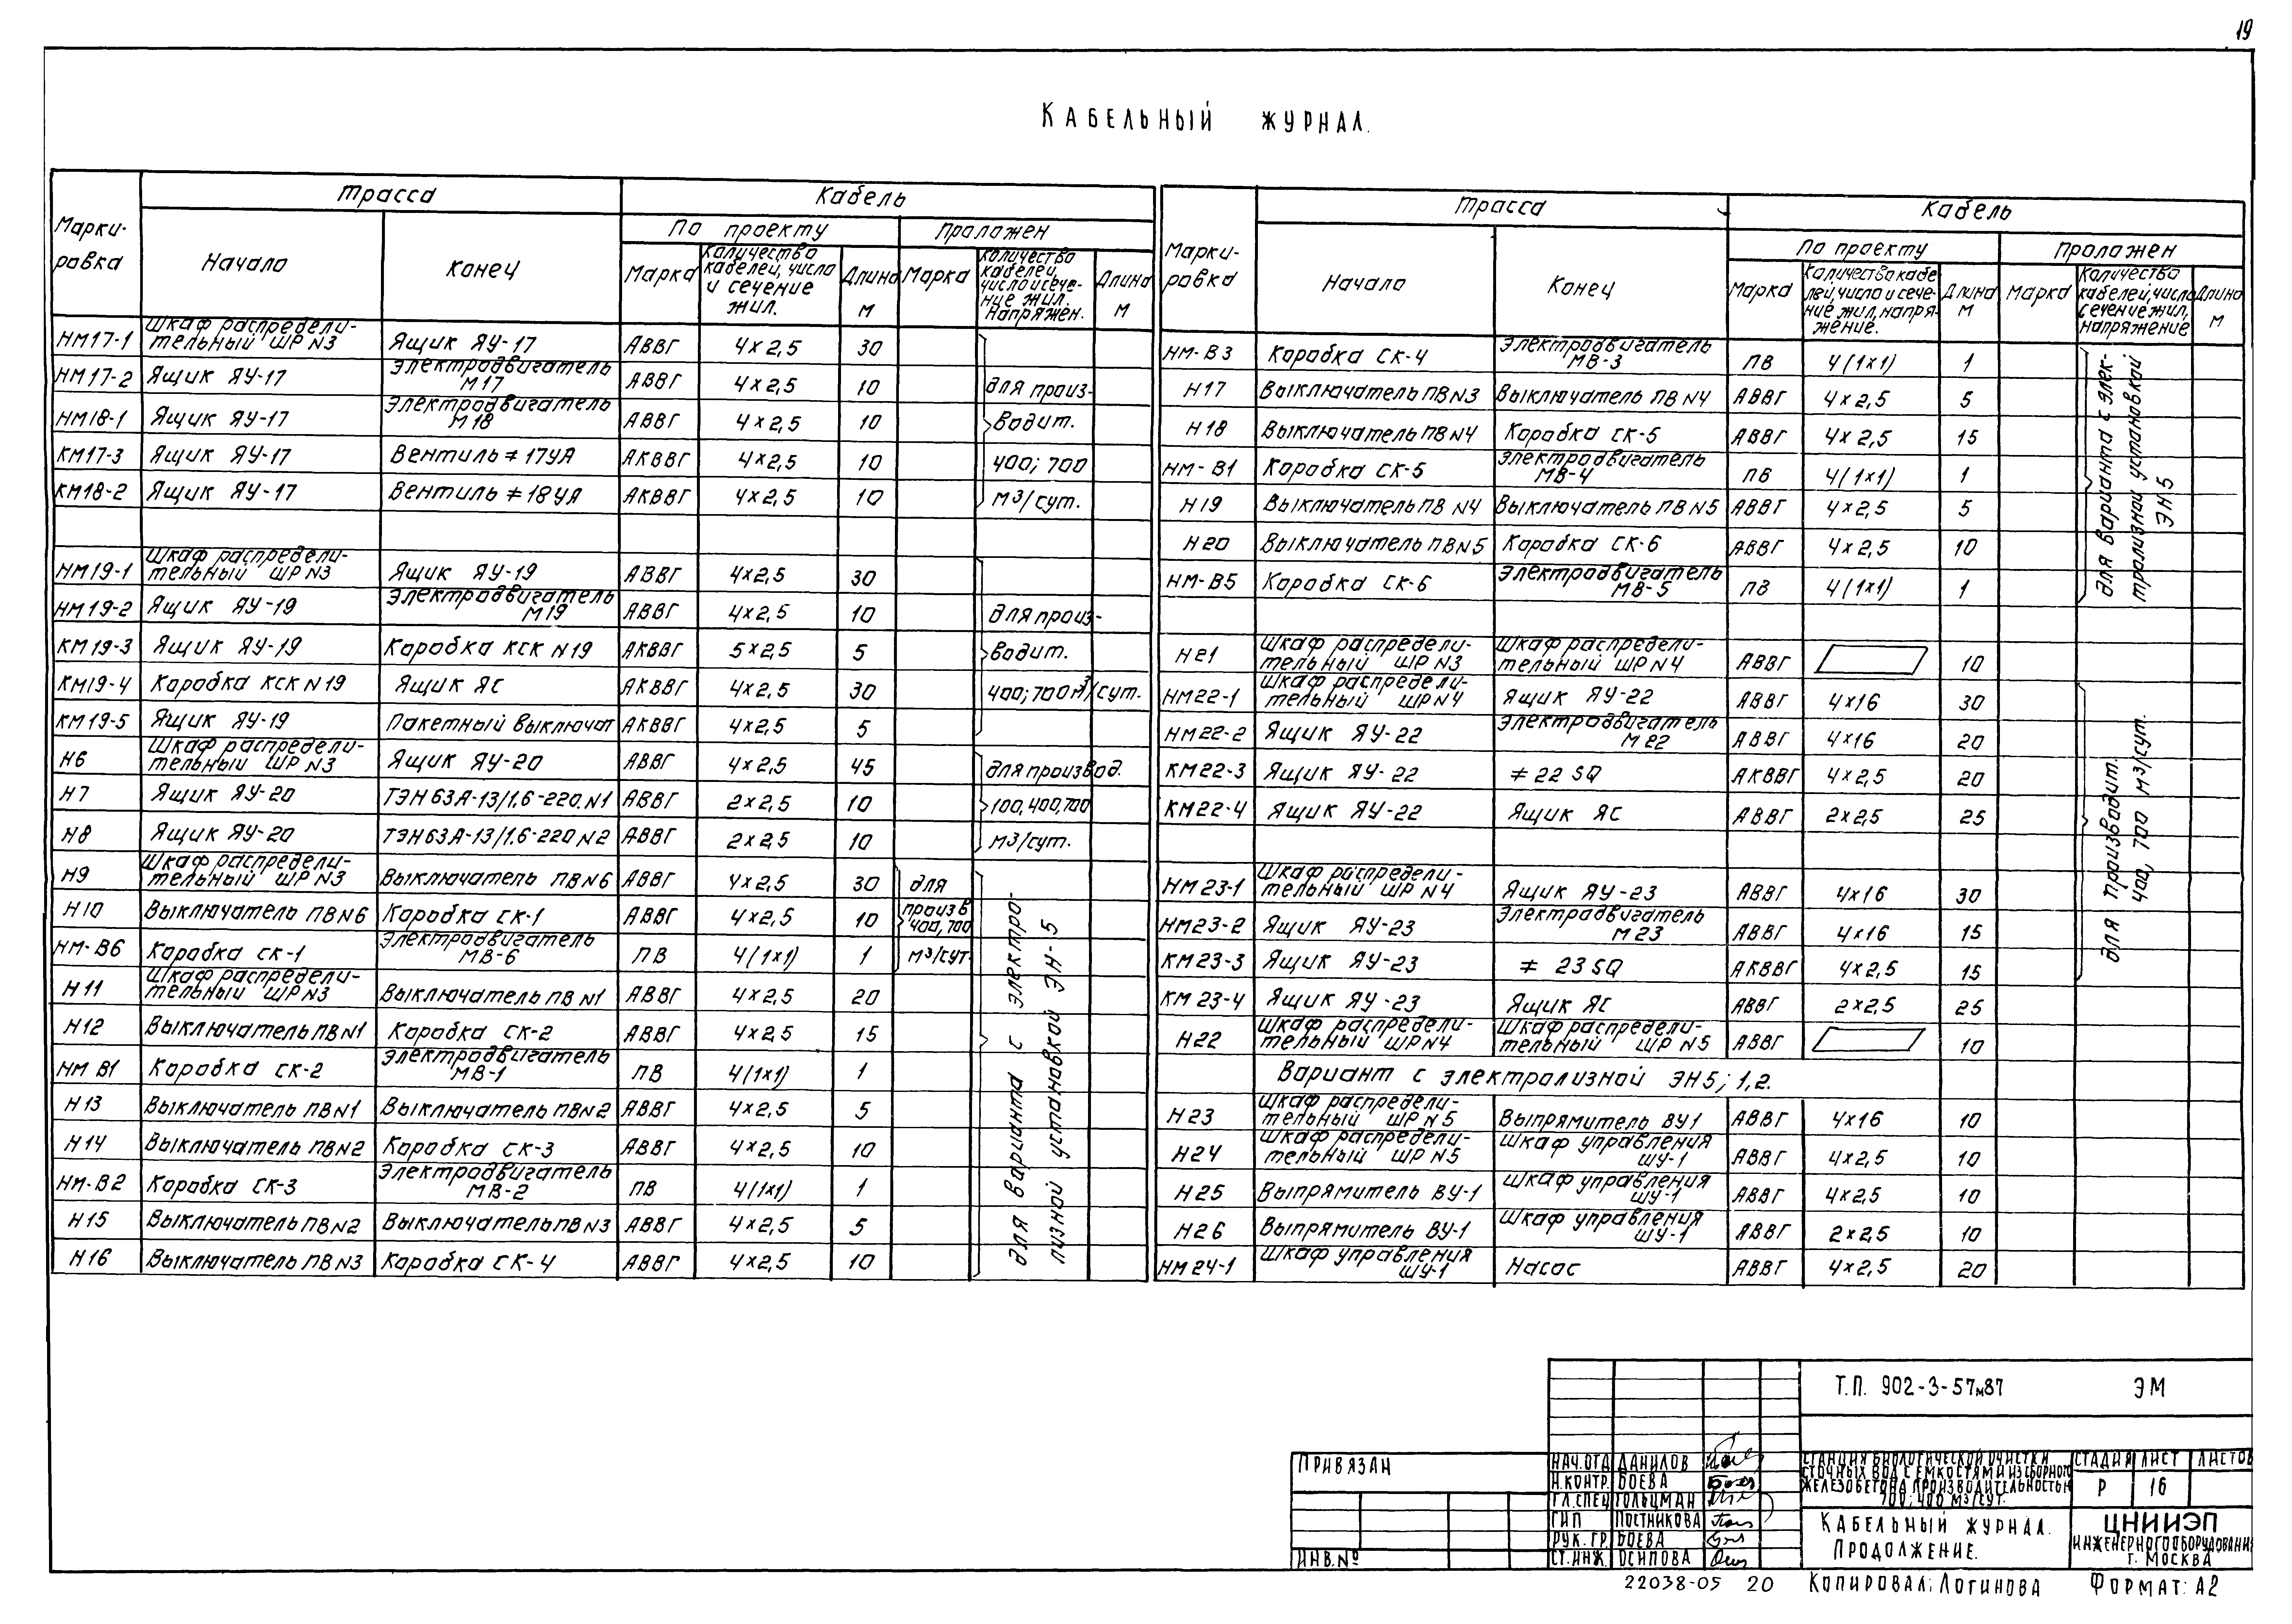 19
Кабельный журнал.
Марки-ровка | Трасса | Кабель
По проекту | Проложен
Начало | Конец | Марка | Количество кабелей, число и сечение жил. | Длина м | Марка | Количество кабелей, число и сече-ние жил. Напряжен. | Длина м
НМ17-1 | Шкаф распредели-тельный ШР N3 | Ящик ЯУ-17 | АВВГ | 4×2,5 | 30
НМ17-2 | Ящик ЯУ-17 | Электродвигатель М17 | АВВГ | 4×2,5 | 10
НМ18-1 | Ящик ЯУ-17 | Электродвигатель М18 | АВВГ | 4×2,5 | 10
КМ17-3 | Ящик ЯУ-17 | Вентиль ≠ 17УА | АКВВГ | 4×2,5 | 10
КМ18-2 | Ящик ЯУ-17 | Вентиль ≠ 18УА | АКВВГ | 4×2,5 | 10
для произ-водит. 400; 700 м³/сут.
НМ19-1 | Шкаф распредели-тельный ШР N3 | Ящик ЯУ-19 | АВВГ | 4×2,5 | 30
НМ19-2 | Ящик ЯУ-19 | Электродвигатель М19 | АВВГ | 4×2,5 | 10
КМ19-3 | Ящик ЯУ-19 | Коробка КСК N19 | АКВВГ | 5×2,5 | 5
КМ19-4 | Коробка КСК N19 | Ящик ЯС | АКВВГ | 4×2,5 | 30
КМ19-5 | Ящик ЯУ-19 | Пакетный выключат | АКВВГ | 4×2,5 | 5
для произ-водит. 400; 700 м³/сут.
Н6 | Шкаф распредели-тельный ШР N3 | Ящик ЯУ-20 | АВВГ | 4×2,5 | 45
Н7 | Ящик ЯУ-20 | ТЭН63А-13/1,6-220.N1 | АВВГ | 2×2,5 | 10
Н8 | Ящик ЯУ-20 | ТЭН63А-13/1,6-220 N2 | АВВГ | 2×2,5 | 10
для производ. 100,400,700 м³/сут.
Н9 | Шкаф распредели-тельный ШР N3 | Выключатель ПВ N6 | АВВГ | 4×2,5 | 30
Н10 | Выключатель ПВ N6 | Коробка СК-1 | АВВГ | 4×2,5 | 10
НМ-В6 | Коробка СК-1 | Электродвигатель МВ-6 | ПВ | 4(1×1) | 1
для произв 400,700 м³/сут.
Н11 | Шкаф распредели-тельный ШР N3 | Выключатель ПВ N1 | АВВГ | 4×2,5 | 20
Н12 | Выключатель ПВ N1 | Коробка СК-2 | АВВГ | 4×2,5 | 15
НМ В1 | Коробка СК-2 | Электродвигатель МВ-1 | ПВ | 4(1×1) | 1
Н13 | Выключатель ПВ N1 | Выключатель ПВ N2 | АВВГ | 4×2,5 | 5
Н14 | Выключатель ПВ N2 | Коробка СК-3 | АВВГ | 4×2,5 | 10
НМ-В2 | Коробка СК-3 | Электродвигатель МВ-2 | ПВ | 4(1×1) | 1
Н15 | Выключатель ПВ N2 | Выключатель ПВ N3 | АВВГ | 4×2,5 | 5
Н16 | Выключатель ПВ N3 | Коробка СК-4 | АВВГ | 4×2,5 | 10
для варианта с электро-лизной установкой ЭН-5
Марки-ровка | Трасса | Кабель
По проекту | Проложен
Начало | Конец | Марка | Количество кабе-лей, число и сече-ние жил, напря-жение. | Длина м | Марка | Количество кабелей, число сечение жил, напряжение | Длина м
НМ-В3 | Коробка СК-4 | Электродвигатель МВ-3 | ПВ | 4(1×1) | 1
Н17 | Выключатель ПВ N3 | Выключатель ПВ N4 | АВВГ | 4×2,5 | 5
Н18 | Выключатель ПВ N4 | Коробка СК-5 | АВВГ | 4×2,5 | 15
НМ-В1 | Коробка СК-5 | Электродвигатель МВ-4 | ПВ | 4(1×1) | 1
Н19 | Выключатель ПВ N4 | Выключатель ПВ N5 | АВВГ | 4×2,5 | 5
Н20 | Выключатель ПВ N5 | Коробка СК-6 | АВВГ | 4×2,5 | 10
НМ-В5 | Коробка СК-6 | Электродвигатель МВ-5 | ПВ | 4(1×1) | 1
для варианта с элек-тролизной установкой ЭН5
Н21 | Шкаф распредели-тельный ШР N3 | Шкаф распредели-тельный ШР N4 | АВВГ | 10
НМ22-1 | Шкаф распредели-тельный ШР N4 | Ящик ЯУ-22 | АВВГ | 4×16 | 30
НМ22-2 | Ящик ЯУ-22 | Электродвигатель М22 | АВВГ | 4×16 | 20
КМ22-3 | Ящик ЯУ-22 | ≠ 22 SQ | АКВВГ | 4×2,5 | 20
КМ22-4 | Ящик ЯУ-22 | Ящик ЯС | АВВГ | 2×2,5 | 25
НМ23-1 | Шкаф распредели-тельный ШР N4 | Ящик ЯУ-23 | АВВГ | 4×16 | 30
НМ23-2 | Ящик ЯУ-23 | Электродвигатель М23 | АВВГ | 4×16 | 15
КМ23-3 | Ящик ЯУ-23 | ≠ 23 SQ | АКВВГ | 4×2,5 | 15
для производит. 400, 700 м³/сут.
КМ23-4 | Ящик ЯУ-23 | Ящик ЯС | АВВГ | 2×2,5 | 25
Н22 | Шкаф распредели-тельный ШР N4 | Шкаф распредели-тельный ШР N5 | АВВГ | 10
Вариант с электролизной ЭН5; 1,2.
Н23 | Шкаф распредели-тельный ШР N5 | Выпрямитель ВУ1 | АВВГ | 4×16 | 10
Н24 | Шкаф распредели-тельный ШР N5 | Шкаф управления ШУ-1 | АВВГ | 4×2,5 | 10
Н25 | Выпрямитель ВУ-1 | Шкаф управления ШУ-1 | АВВГ | 4×2,5 | 10
Н26 | Выпрямитель ВУ-1 | Шкаф управления ШУ-1 | АВВГ | 2×2,5 | 10
НМ24-1 | Шкаф управления ШУ-1 | Насос | АВВГ | 4×2,5 | 20
Т.П. 902-3-57м87 ЭМ
Привязан
Инв.№
Нач.отд Данилов
Н.контр. Боева
Гл.спец Гольцман
ГИП Постникова
Рук.гр. Боева
Ст.инж. Осипова
Станция биологической очистки
сточных вод с емкостями из сборного
железобетона производительностью
700; 400 м³/сут.
Стадия Лист Листов
Р 16
Кабельный журнал.
Продолжение.
ЦНИИЭП
инженерного оборудования
г. Москва
22038-05 20 Копировал: Логинова Формат: А2